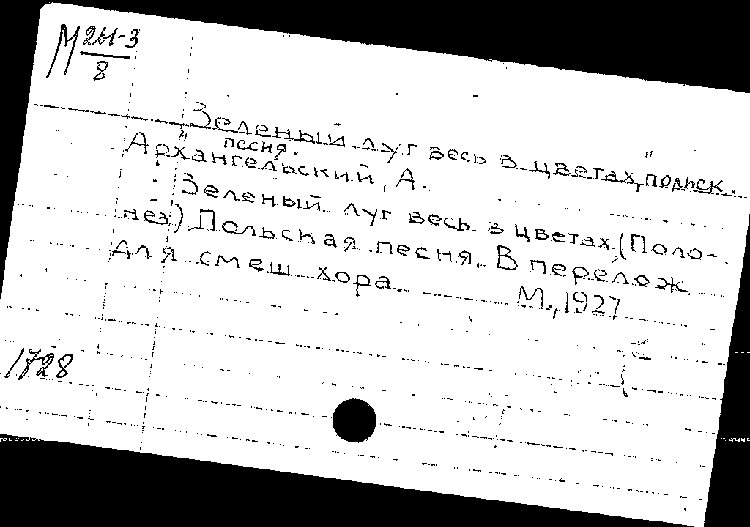 М 24-3
8
"Зеленый луг весь в цветах," польск.
песня.
Архангельский, А.
Зеленый луг весь в цветах. (Поло-
нез) Польская песня. В перелож
для смеш хора.
М., 1927
1728